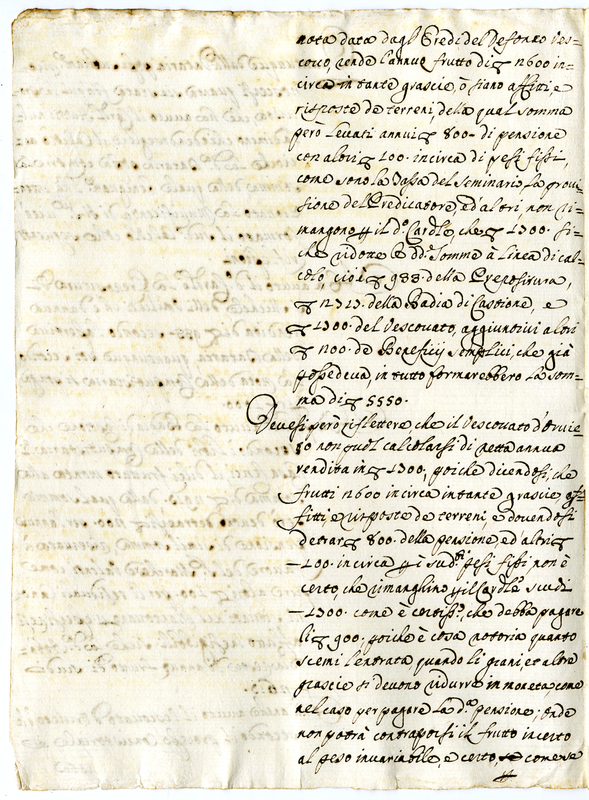 nota data dagl'Eredi del Defonto Ves=
covo, rende l'annuo frutto di ▽ 2600 in=
circa in tante grascie, ò siano affitti, e
risposte de terreni, della qual somma
però levati annui ▽ 800- di pensione
con altri ▽ 400. incirca di pesi fissi,
come sono la Tassa del Seminario, la provi=
sione del Predicatore, ed altri, non ri=
mangono p il d.º Cardle, che ▽ 1300. Si=
che ridotte le dd.e Somme à linea di cal=
colo, cioè ▽ 938. della Prepositura,
▽ 2313. della Badia di Castione, e
▽ 1300. del Vescovato, aggiuntivi altri
▽ de Beneficij semplici, che già
possedeva, in tutto formarebbero la som=
ma di ▽ 5550.
Devesi però riflettere, che il Vescovato d'Orvie=
to non puol calcolarsi di netta annua
rendita in ▽ 1300, poiche dicendosi, che
frutti 2600 incirca in tante grascie af=
fitti, e risposte de terreni, e dovendosi
detrar ▽ 800. della pensione, ed altri ▽
400. incirca p i sud.ti pesi fissi, non è
certo, che rimanghino p il Cardle scudi
1300. come è certiss.º, che debba pagare
li ▽ 900. poiche è cosa notoria quanto
scemi l'entrata quando li grani, et altre
grascie si devono ridurre in moneta, come
nel caso per pagare la d.a pensione; onde
non potrà contraporsi il frutto incerto
al peso invariabile, e certo, come